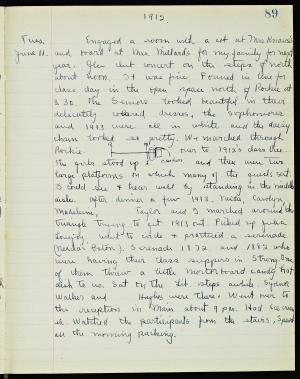 1912.
89
Tues.
June 11.
Engaged a room with a cot at Mrs
and board at Mrs. Millard's for my family for next
year. Glee club concert on the steps of north
about noon. It was fine. Formed in line for
class day in the open space north of Rockie at
2.30. The Seniors looked beautiful in their
delicately colored dresses, the sophomores
and 1913 were all in white and the daisy
chain looked so pretty. We marched through
Rockie over to 1912's class tree.
The girls stood up and there were two
large platforms on which many of the guests sat.
I could see & hear well by standing in the middle
aisle. After dinner a few 1913, Carolyn
Madeleine, Taylor and I marched around the
triangle trying to get 1913 out. Picked up
went to circle & practiced a serenade
Serenade 1872 and 1882 who
were having their class suppers in Strong. One
of them threw a little mortarboard candy
dish to us. Sat by the Lit. steps awhile. Sydnor
Walker and Hughes were there. Went over to
the reception in Main about 9 p.m. Had ice cream
etc. Watched the participants from the stairs. Spent
all the morning packing.